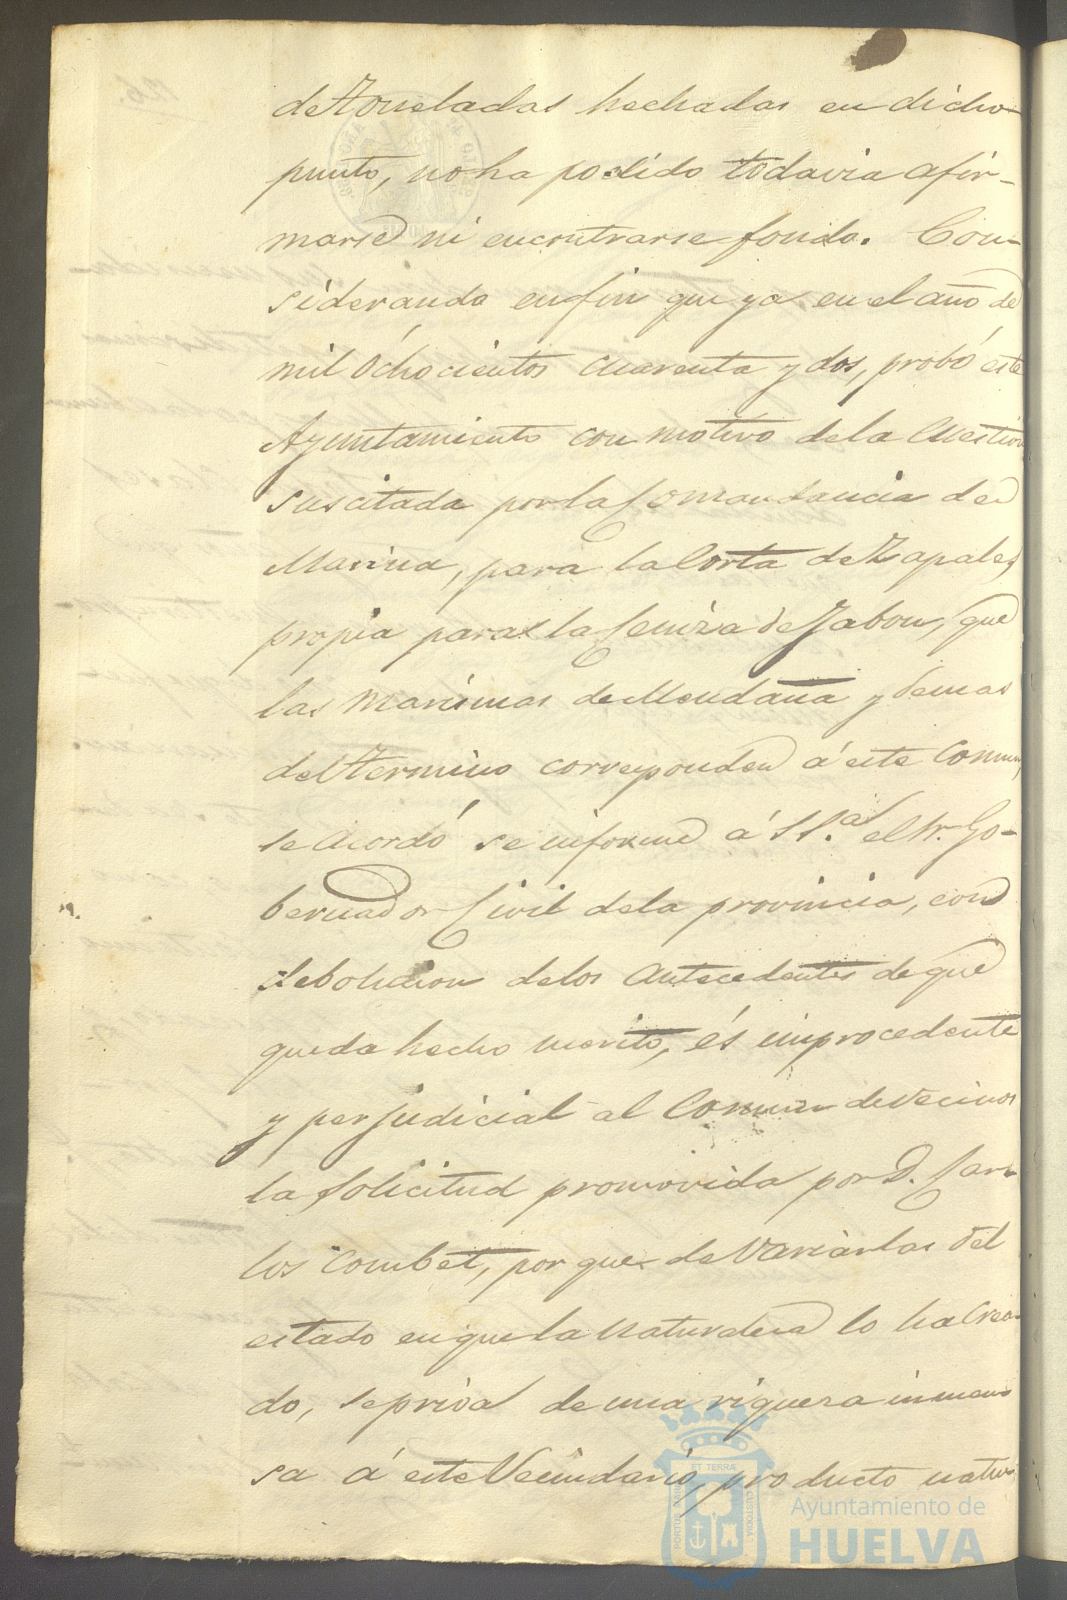 de toneladas hechadas en dicho
punto, no ha podido todavia afir-
marse ni encontrarse fondo. Con-
siderando en fin que ya en el año de
mil óchocientos cuarenta y dos, probó este
Ayuntamiento con motivo de la Cuestion
suscitada por la Comandancia de
Marina, para la Corta de Zapales,
propia para la Ceniza de Jabon, que
las Marismas de Mendaña y demas
del termino corresponden á este Comun,
se acordó se informe á S S.ª el Sr. Go-
bernador Civil de la provincia, con
debolucion de los antecedentes de que
queda hecho merito, és improcedente
y perjudicial al Comun de vecinos
la solicitud promovida por D. Car-
los Combet, por que de Variarlas del
estado en que la naturaleza lo ha Crea-
do, se priva de una riqueza inmen
sa á este Vecindario, producto natu
Ayuntamiento de
HUELVA
ET TERRÆ
CUSTODIA
PORTUS